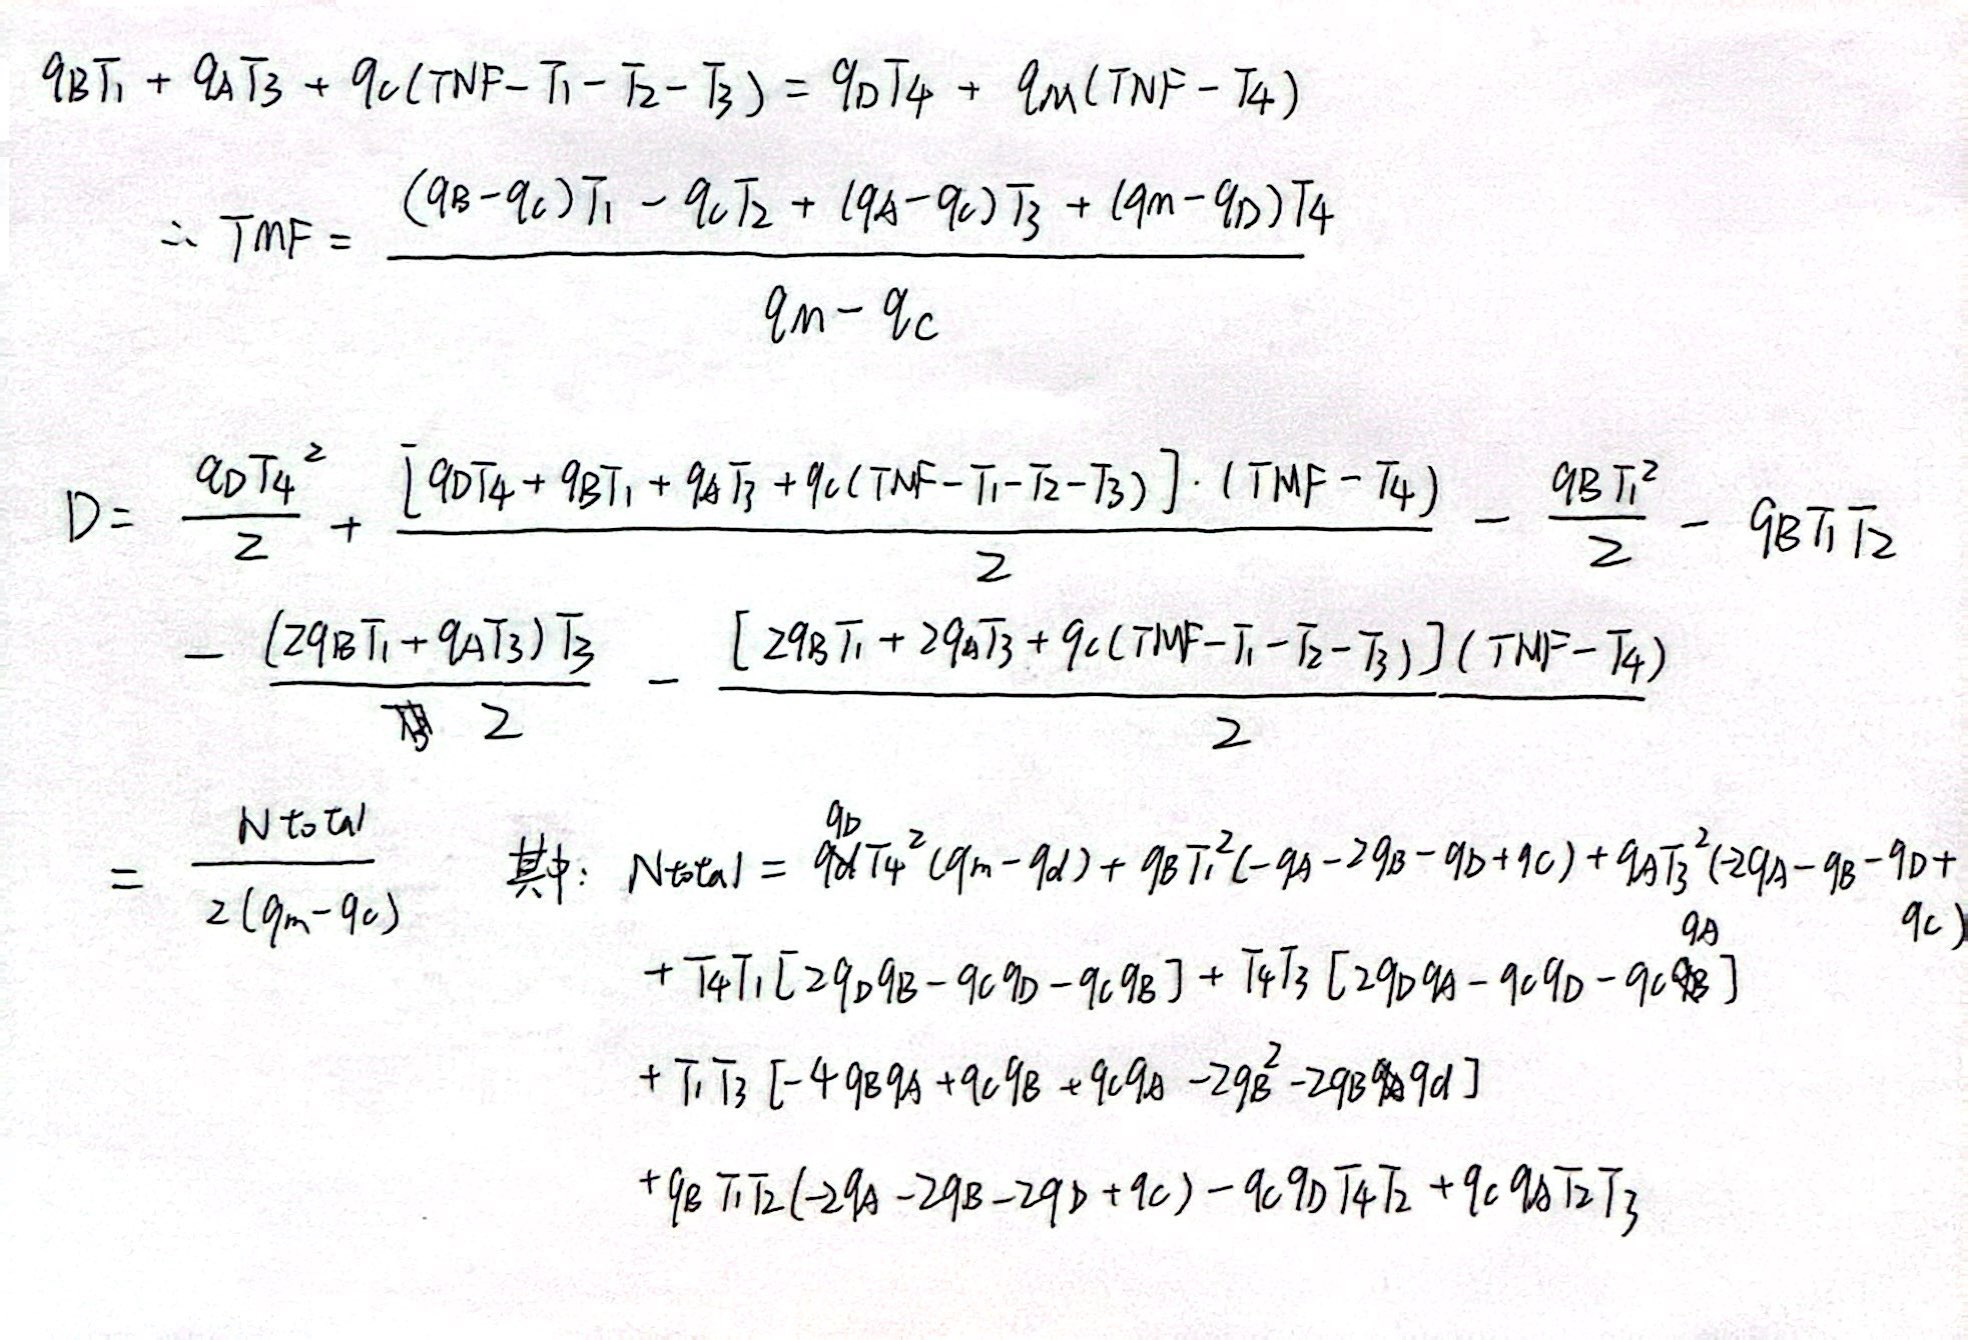 qBT1 + qAT3 + qC(TNF - T1 - T2 - T3) = qDT4 + qm(TNF - T4)
∴ TMF = \frac{(qB-qC)T1 - qCT2 + (qA-qC)T3 + (qm-qD)T4}{qm - qC}
D = \frac{qDT4^2}{2} + \frac{[qDT4 + qBT1 + qAT3 + qC(TNF-T1-T2-T3)]·(TMF-T4)}{2} - \frac{qBT1^2}{2} - qBT1T2
- \frac{(2qBT1 + qAT3)T3}{2} - \frac{[2qBT1 + 2qAT3 + qC(TMF-T1-T2-T3)](TMF-T4)}{2}
= \frac{Ntotal}{2(qm-qC)} 其中: Ntotal = qDT4^2(qm-qd) + qBT1^2(-qA-2qB-qD+qC) + qAT3^2(-2qA-qB-qD+
qC)
+ T4T1[2qDqB - qCqD - qCqB] + T4T3[2qDqA - qCqD - qCqA]
+ T1T3[-4qBqA + qCqB + qCqA - 2qB^2 - 2qBqd]
+ qBT1T2(-2qA - 2qB - 2qD + qC) - qCqDT4T2 + qCqAT2T3